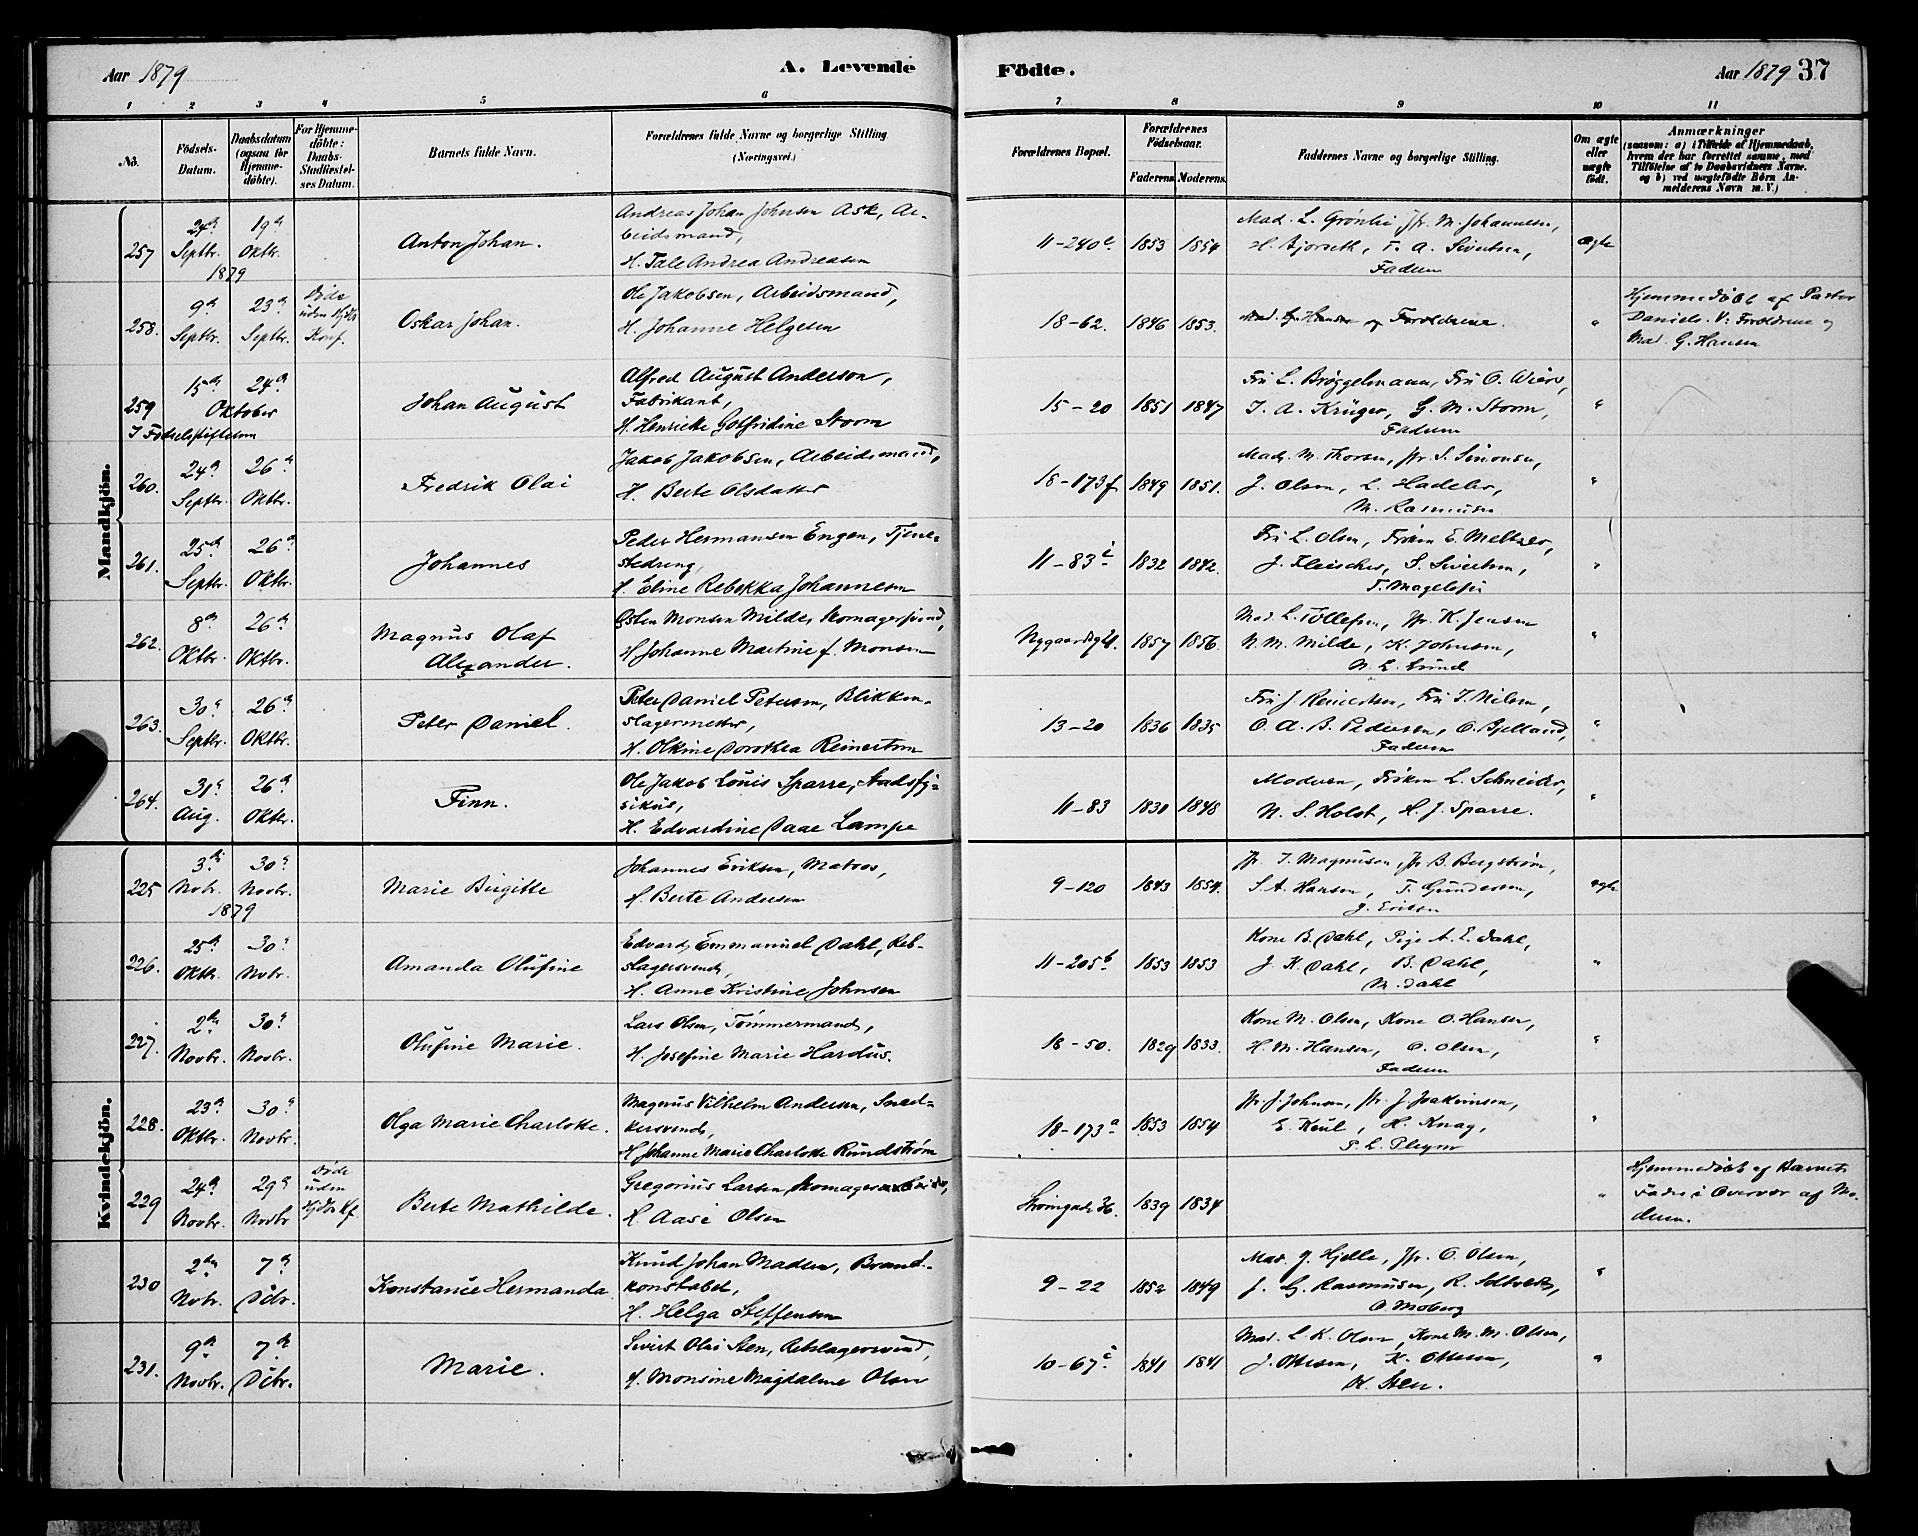 Aar 1879
A. Levende
Födte.
Aar 1879 37
1 2 3 4 5 6 7 8 9 10 11
No.
Födsels-
Datum.
Daabsdatum
(ogsaa for
Hjemme-
döbte).
For Hjemme-
döbte:
Daabs-
Stadfæstel-
ses Datum.
Barnets fulde Navn.
Forældrenes fulde Navne og borgerlige Stilling.
(Næringsvei.)
Forældrenes Bopæl.
Forældrenes
Födselsaar.
Faderens Moderens.
Faddernes Navne og borgerlige Stilling.
Om ægte
eller
uægte
födt.
Anmærkninger
(saasom: a) i Tilfælde af Hjemmedaab,
hvem der har forrettet samme, med
Tilföielse af to Daabsvidners Navne.
og b) ved uægtefödte Börn An-
melderens Navn m. V.)
Mandkjön.
257
24de Septbr.
1879
19de Oktbr.
Anton Johan.
Andreas Johan Johnsen Ask, Ar-
beidsmand,
H. Tale Andrea Andreasen
11-240 1853 1854
Mad. L. Grönlie Jfr. M. Johannesen,
H. Bjorseth, F. A. Sivertsen,
Faderen
Ægte
258.
9de Septbr.
23de Septbr.
Döde
uden Kirkens
Konf.
Oskar Johan.
Ole Jakobsen, Arbeidsmand,
H. Johanne Helgesen
18-62. 1846 1853.
Mad. G. Hansen og Forældrene.
"
Hjemmedöbt af Pastor
Daniels. V: Forældrene og
Mad. G. Hansen
259
15de 24de
Oktober
I Födselsstiftelsen
Johan August
Alfred August Anderson,
Fabrikant,
H. Henriette Gotfridine Storm
15-20 1851 1847
Fru L. Bröggelmann, Fru O. Wiers,
J. A. Krüger, G. M. Storm,
Faderen
"
260.
24de Septbr.
26de Oktbr.
Fredrik Olai
Jakob Jakobsen, Arbeidsmand,
H. Berte Olsdatter
18-173f 1849 1851.
Mad. M. Thorsen, Jfr. S. Simonsen,
J. Olsen, L. Hadeler,
M. Rasmussen
"
261.
25de Septbr.
26de Oktbr.
Johannes
Peder Hermansen Engen, Tjene-
stedreng,
H. Eline Rebekka Johannesen
11-83i 1832 1842.
Fru L. Olsen, Fröken E. Meltzer,
J. Fleischer, S. Sivertsen,
T. Magelssen
"
262.
8de Oktbr.
26de Oktbr.
Magnus Olaf
Alexander.
Osten Monsen Milde, Skomagersvend,
H Johanne Martine f. Monsen
Nygaardsg 21. 1857 1856.
Mad. L. Tollefsen, Jfr. K. Jensen
N. M. Milde, K. Johnsen,
N. E. Lund
"
263.
30te Septbr.
26de Oktbr.
Peter Daniel.
Peter Daniel Petersen, Blikken-
slagermester,
H. Olkine Dorothea Reinertsen
13-20 1836 1835
Fru J. Reinertsen, Fru J. Nilsen,
O. A. B. Pedersen, O. Bjelland,
Faderen
"
264.
31te Aug.
26de Oktbr.
Finn.
Ole Jakob Louis Sparre, Stadsfy-
sikus,
H. Edvardine Daae Lampe
11-83 1830 1848
Moderen, Fröken L. Schneider,
N. S. Holst, H. J. Sparre.
"
Kvindekjön.
225
3die Nvbr.
1879
30te Novbr.
Marie Birgitte
Johannes Eriksen, Matros,
H. Berte Andersen
9-120 1843 1854.
Jfr. J. Magnussen, Jfr B. Bergström,
S. A. Hansen, T. Gundersen,
J. Eriksen
ægte
226.
25de Oktbr.
30te Nvbr.
Amanda Olufine
Edvard Emmanuel Dahl, Reb-
slagersvend,
H. Anne Kristine Johnsen
11-205b 1853 1853
Kone B. Dahl, Pige A. E. Dahl,
J. K. Dahl, B. Dahl,
M. Dahl
"
227.
2den Novbr.
30te Novbr.
Olufine Marie.
Lars Olsen, Tömmermand,
H. Josefine Marie Hardus.
18-50. 1829 1833.
Kone M. Olsen, Kone O. Hansen,
H. M. Hansen, O. Olsen,
Faderen
"
228.
23de Oktbr.
30te Novbr.
Olga Marie Charlotte.
Magnus Vilhelm Andersen, Sned-
kersvend,
H Johanne Marie Charlotte Rundström
18-173a 1853 1854
Jfr. J. Johnsen, Jfr. J. Joakimsen,
E. Keul, H. Knag,
P. L. Pleym
"
229
24de Novbr.
29de Novbr
Döde
uden
Kirkens Kf.
Berte Mathilde.
Gregorius Larsen, Skomagerarbeider,
H. Aase Olsen
Strömgade 36. 1839 1834
"
Hjemmedöbt af Barnets
Fader i Overvær af Mo-
deren.
230
2den Nvbr.
7de Dcbr.
Konstance Hermanda.
Knud Johan Madsen, Brand-
konstabel,
H. Helga Steffensen
9-22 1852 1849
Mad. J. Hjelle, Jfr. O. Olsen,
J. G. Rasmussen, R. Soltvedt,
O Moberg
"
231.
9de Novbr.
7de Dcbr.
Marie.
Sivert Olai Sten, Rebslagersvend,
H. Monsine Magdalene Olsen
10-67c 1841 1841
Mad. L. K. Olsen, Kone M. M. Olsen,
J. Ottesen, K. Ottesen,
K. Sten.
"